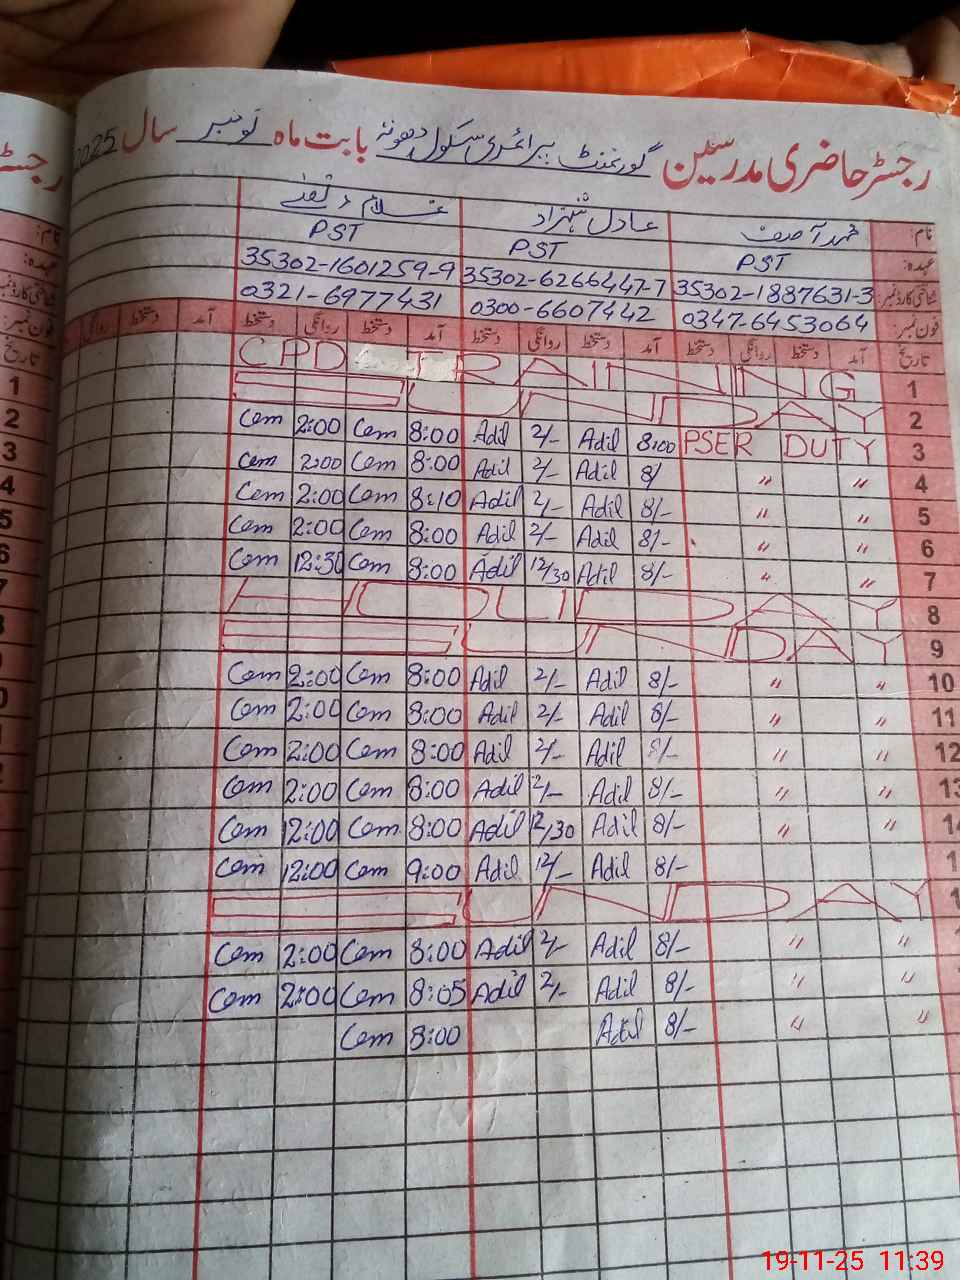 رجسٹر حاضری مدرسین گورنمنٹ پرائمری سکول دھونہ بابت ماہ نومبر سال 2025
نام: محمد آصف عادل شہزاد غلام
عہدہ: PST PST PST
شناختی کارڈ نمبر: 35302-1887631-3 35302-6266447-7 35302-1601259-9
فون نمبر: 0347-6453064 0300-6607442 0321-6977431
تاریخ آمد دستخط روانگی دستخط آمد دستخط روانگی دستخط آمد دستخط روانگی دستخط آمد دستخط روانگی
CPD TRAINING 1
SUNDAY 2
Cem 2:00 Cem 8:00 Adil 2/- Adil 8:00 PSER DUTY 3
Cem 2:00 Cem 8:00 Adil 2/- Adil 8/ " " 4
Cem 2:00 Cem 8:10 Adil 2/- Adil 8/- " " 5
Cem 2:00 Cem 8:00 Adil 2/- Adil 8/- " " 6
Cem 12:30 Cem 8:00 Adil 12/30 Adil 8/- " " 7
HOLIDAY 8
SUNDAY 9
Cem 2:00 Cem 8:00 Adil 2/- Adil 8/- " " 10
Cem 2:00 Cem 8:00 Adil 2/- Adil 8/- " " 11
Cem 2:00 Cem 8:00 Adil 2/- Adil 8/- " " 12
Cem 2:00 Cem 8:00 Adil 2/- Adil 8/- " " 13
Cem 12:00 Cem 8:00 Adil 12/30 Adil 8/- " " 14
Cem 12:00 Cem 9:00 Adil 12/- Adil 8/- 1
SUNDAY 1
Cem 2:00 Cem 8:00 Adil 2/- Adil 8/- " "
Cem 2:00 Cem 8:05 Adil 2/- Adil 8/- " "
Cem 8:00 Adil 8/- " "
19-11-25 11:39